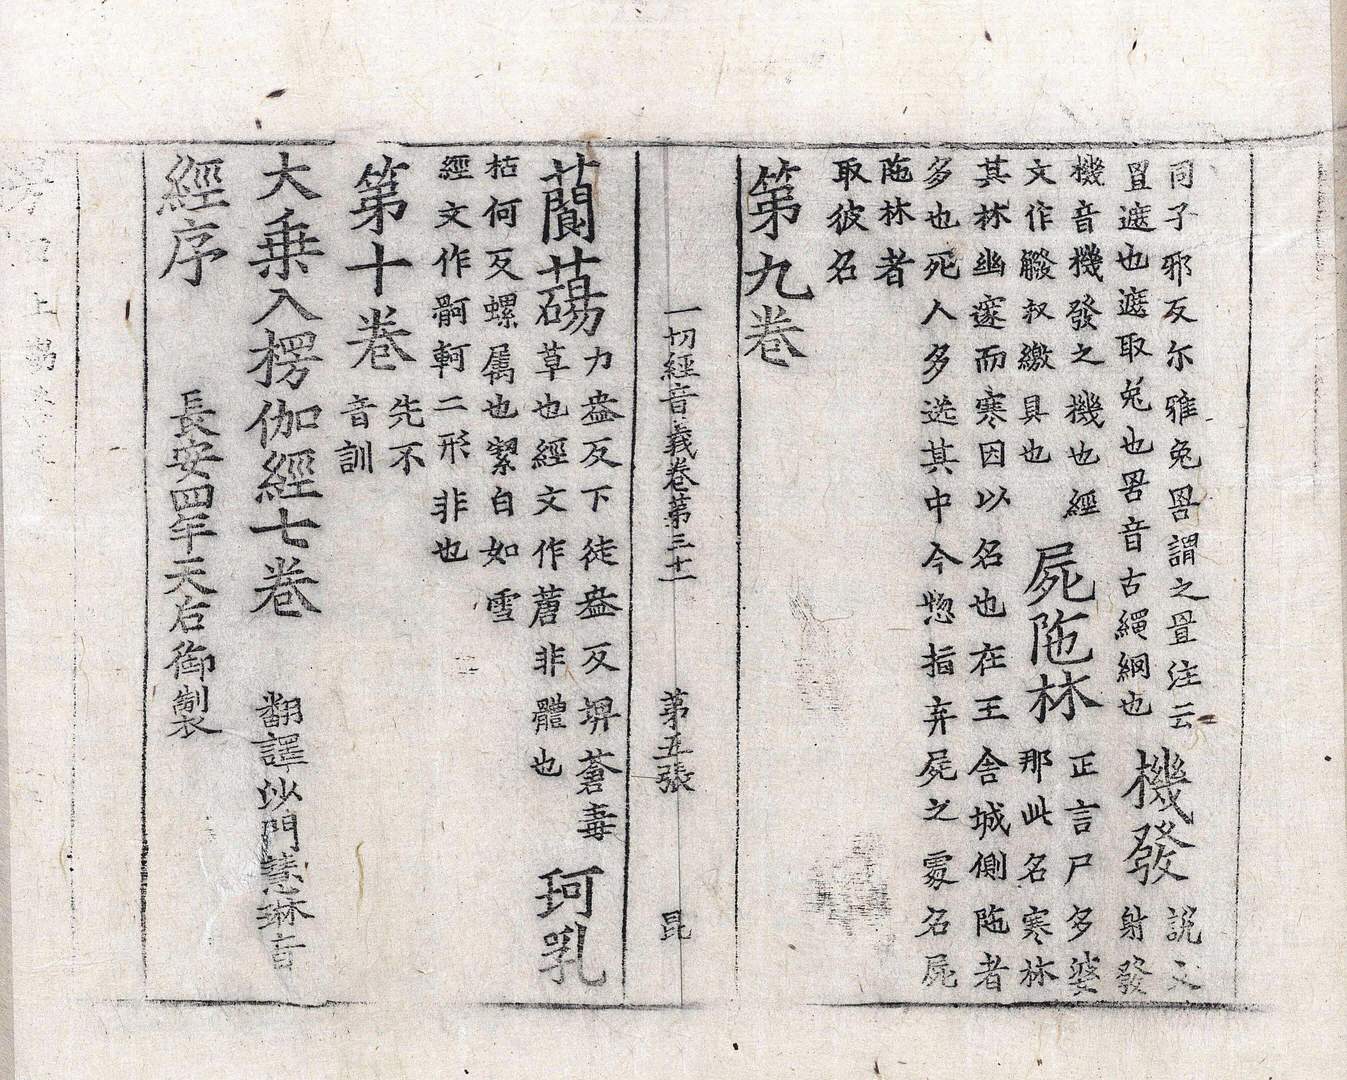 同子邪反尓雅兔罟謂之罝注云
罝遮也遮取兔也罟音古繩網也
機發
說文
射發
機音機發之機也經
文作撥収繳具也
屍陁林
正言尸多婆
那此名寒林
其林幽邃而寒因以名也在王舍城側陁者
多也死人多送其中今惣指弃屍之處名屍
陁林者
取彼名
第九卷
一切經音義卷第三十一 第五張 昆
䕞𦿆
力盎反下徒盎反埤蒼毒
草也經文作蓎非體也
珂乳
枯何反螺属也絜白如雪
經文作𩨷軻二形非也
第十卷
先不
音訓
大乗入楞伽經七卷 翻譯沙門慧琳音
經序 長安四年天后御製